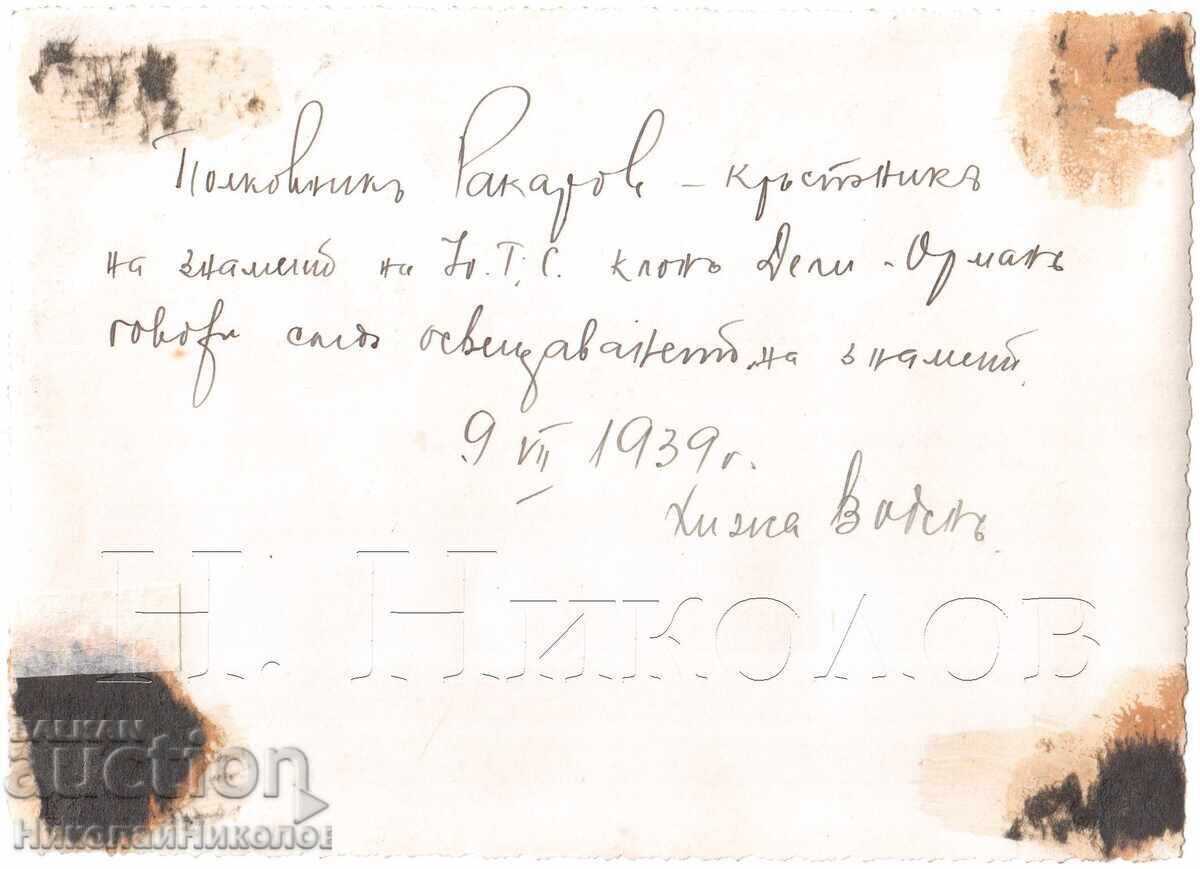 Полковникъ Ракаровъ – кръстникъ
на знамето на Ю.Т.С. клонъ Дели-Орманъ
говори следъ освещаването на знамето.
9 VII 1939 г.
Хижа Воденъ
Н. Николов
BALKAN
auction
НиколайНиколов